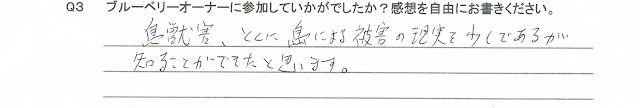 Q3 ブルーベリーオーナーに参加していかがでしたか？感想を自由にお書きください。
鳥獣害、とくに鳥による被害の現実を少しであるが
知ることができたと思います。